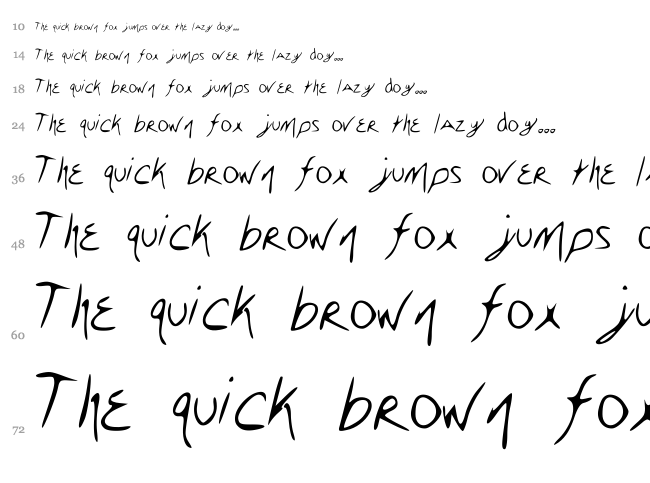 10 The quick brown fox jumps over the lazy dog...
14 The quick brown fox jumps over the lazy dog...
18 The quick brown fox jumps over the lazy dog...
24 The quick brown fox jumps over the lazy dog...
36 The quick brown fox jumps over the l
48 The quick brown fox jumps o
60 The quick brown fox ju
72 The quick brown fox